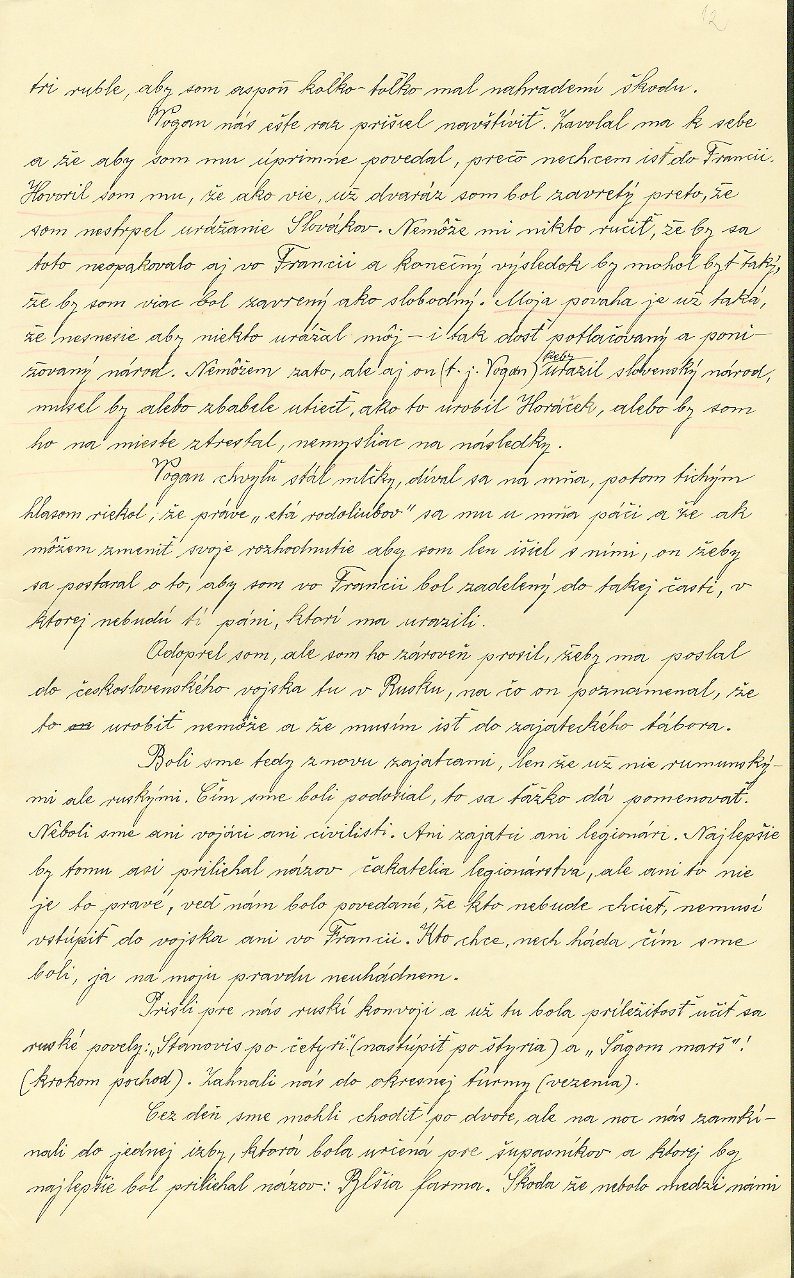 12
tri ruble, aby som aspoň koľko-toľko mal nahradenú škodu.
Vogan nás ešte raz prišiel navštíviť. Zavolal ma k sebe
a že aby som mu úprimne povedal, prečo nechcem isť do Francii.
Hovoril som mu, že ako vie, už dvaráz som bol zavretý preto, že
som nestrpel urážanie Slovákov. Nemôže mi nikto ručiť, že by sa
toto neopakovalo aj vo Francii a konečný výsledok by mohol byť taký,
že by som viac bol zavrený ako slobodný. Moja povaha je už taká,
že nesnesie aby niekto urážal môj – i tak dosť potlačovaný a poni-
žovaný národ. Nemôžem zato, ale aj on (t. j. Vogan) keby urazil slovenský národ,
musel by alebo zbabele utiecť, ako to urobil Horáček, alebo by som
ho na mieste ztrestal, nemysliac na následky.
Vogan chvyľu stál mlčky, díval sa na mňa, potom tichým
hlasom riekol, že práve „etá rodoliubov" sa mu u mňa páči a že ak
môžem zmeniť svoje rozhodnutie aby som len išiel s nimi, on žeby
sa postaral o to, aby som vo Francii bol zadelený do takej časti, v
ktorej nebudú tí páni, ktorí ma urazili.
Odoprel som, ale som ho zároveň prosil, žeby ma poslal
do československého vojska tu v Rusku, na čo on poznamenal, že
to on urobiť nemôže a že musím isť do zajateckého tábora.
Boli sme tedy znovu zajatcami, len že už nie rumunský-
mi ale ruskými. Čím sme boli podotial, to sa ťažko dá pomenovať.
Neboli sme ani vojáci ani civilisti. Ani zajatci ani legionári. Najlepšie
by tomu asi priliehal názov čakatelia legionárstva, ale ani to nie
je to pravé, veď nám bolo povedané, že kto nebude chcieť, nemusí
vstúpiť do vojska ani vo Francii. Kto chce, nech háda čím sme
boli, ja na moju pravdu neuhádnem.
Prišli pre nás ruskí konvoji a už tu bola príležitosť učiť sa
ruské povely: „Stanovis po četyri" (nastúpiť po štyria) a „Šagom marš"!
(krokom pochod). Zahnali nás do okresnej ťurmy (vezenia).
Cez deň sme mohli chodiť po dvore, ale na noc nás zamkí-
nali do jednej izby, ktorá bola určená pre šupasníkov a ktorej by
najlepšie bol priliehal názov: Blšia farma. Škoda že nebolo medzi nami